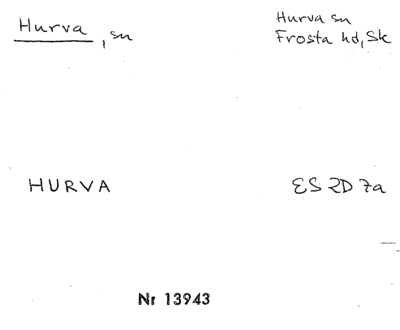 Hurva, sn
Hurva sn
Frosta hd, Sk
HURVA
ES 2D 7a
Nr 13943